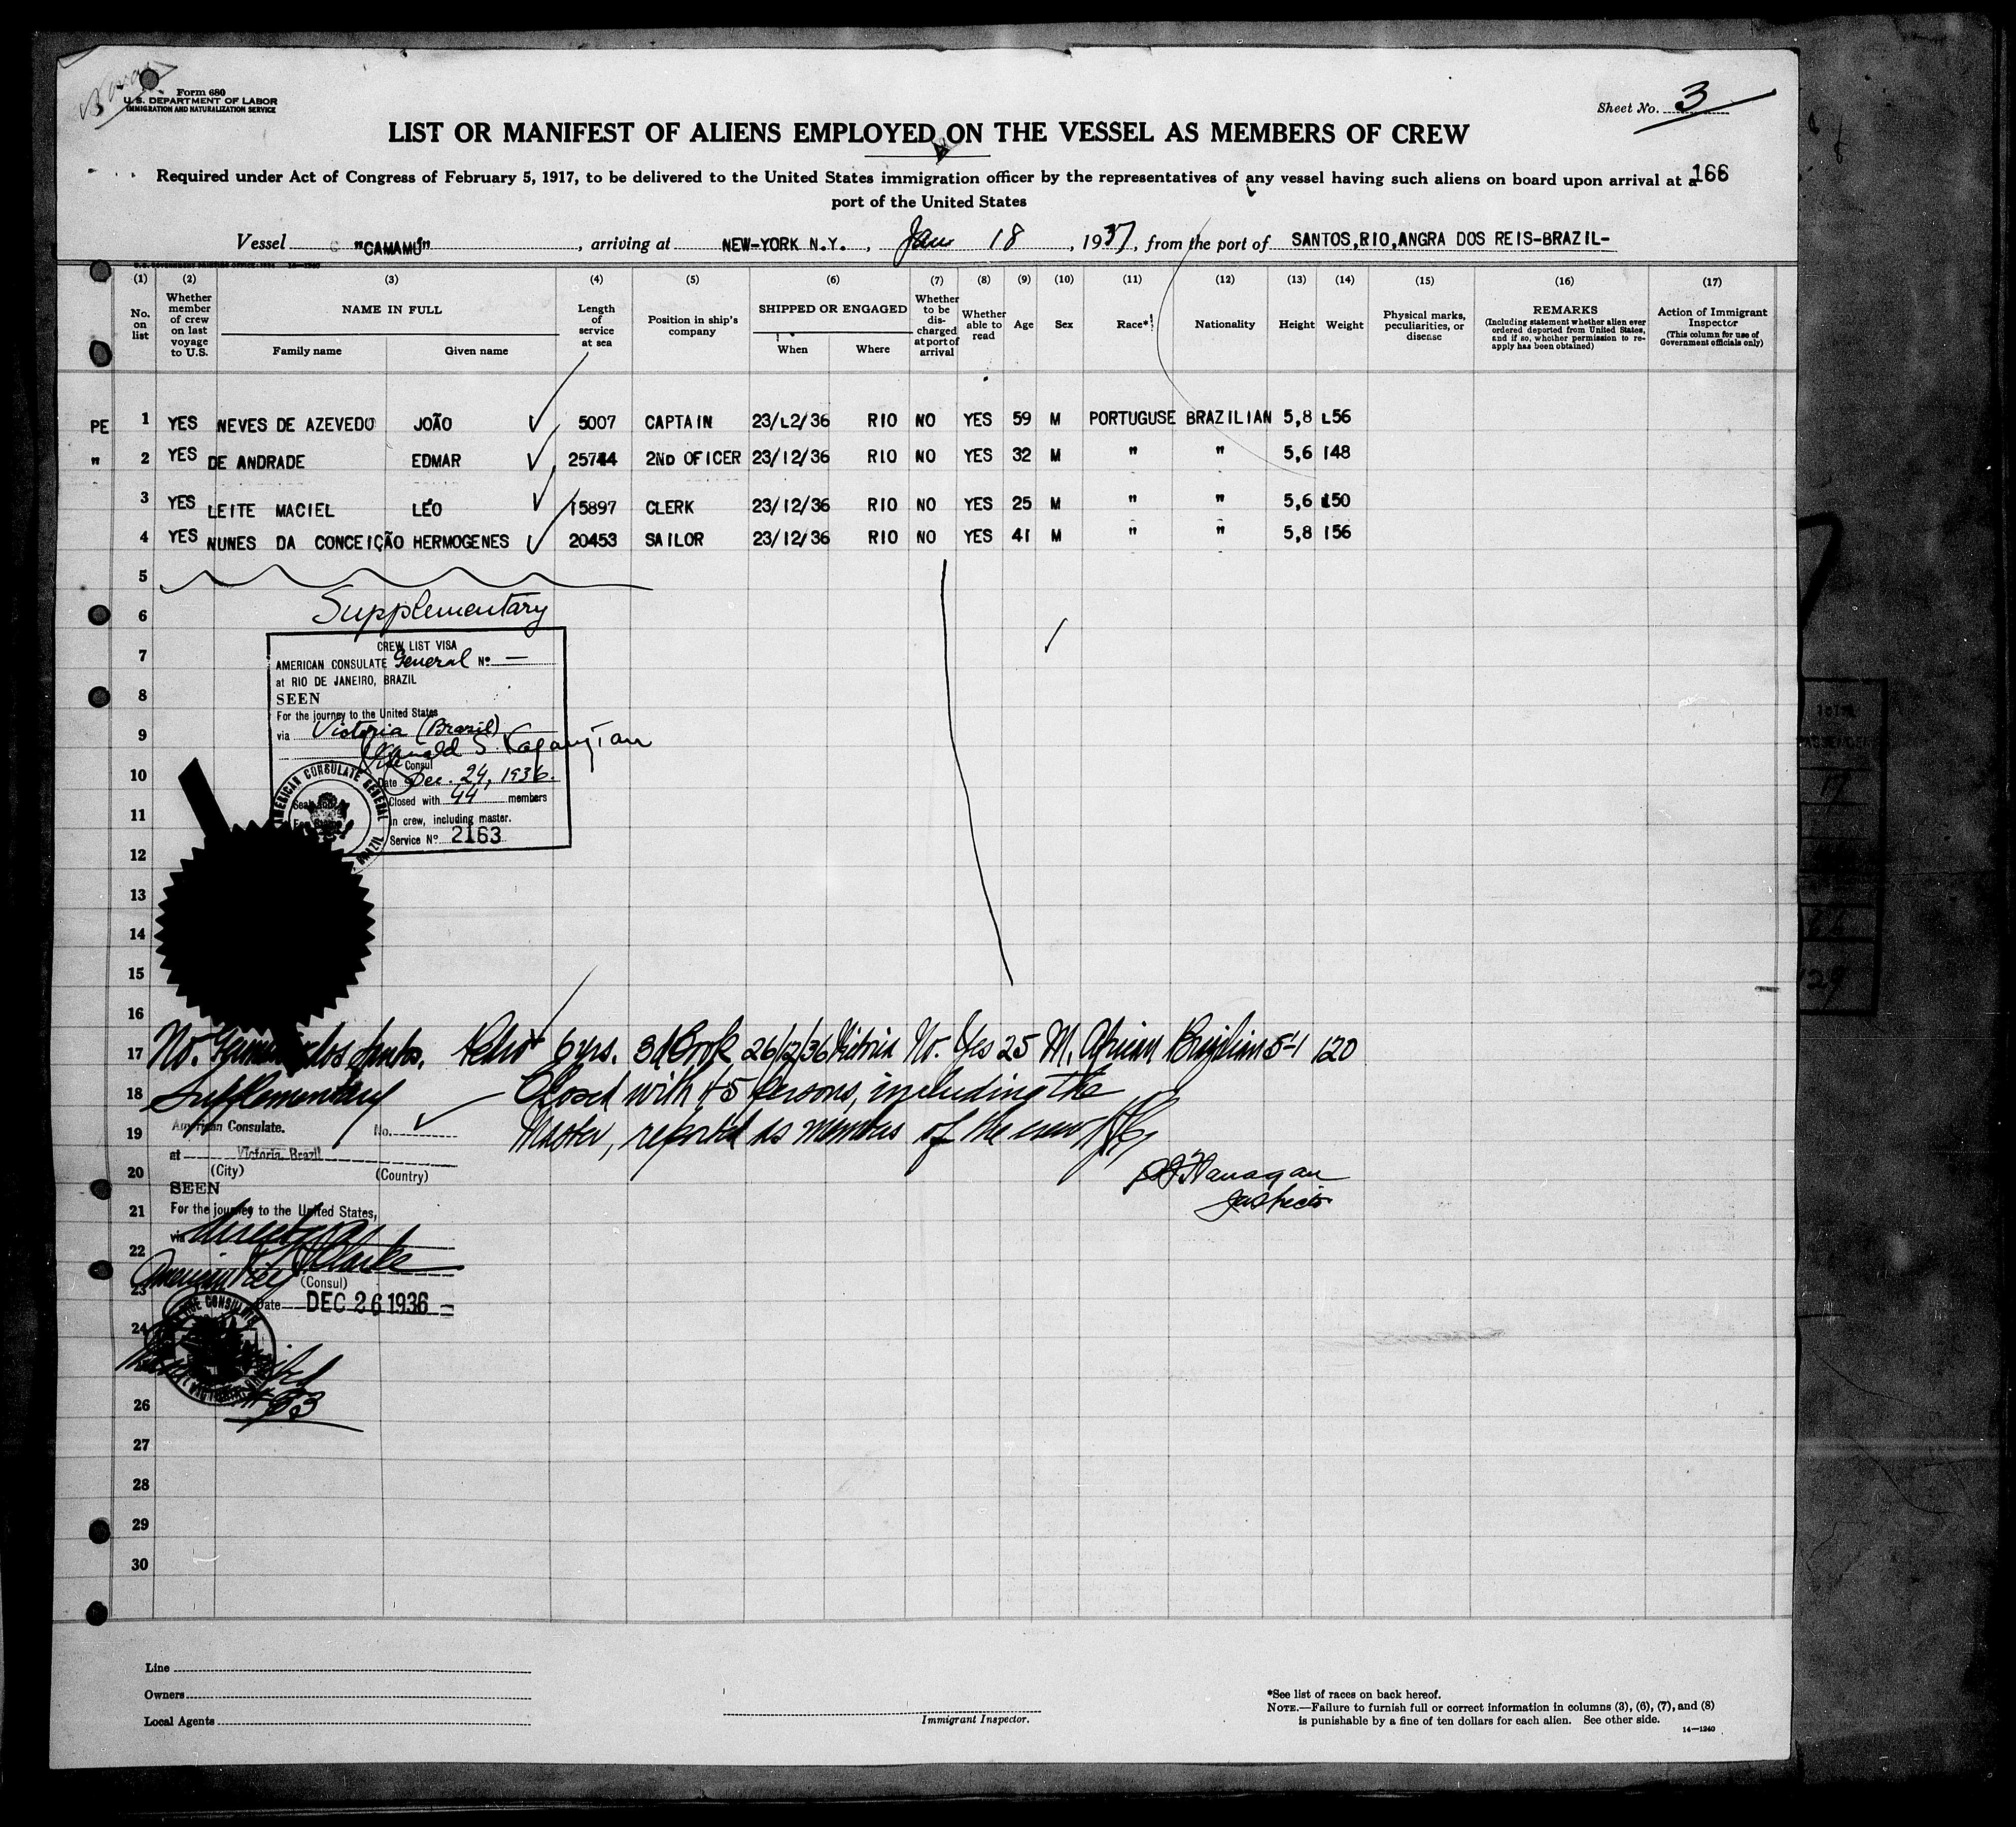 Form 680
U. S. DEPARTMENT OF LABOR
IMMIGRATION AND NATURALIZATION SERVICE
Sheet No. 3
LIST OR MANIFEST OF ALIENS EMPLOYED ON THE VESSEL AS MEMBERS OF CREW
Required under Act of Congress of February 5, 1917, to be delivered to the United States immigration officer by the representatives of any vessel having such aliens on board upon arrival at a
166
port of the United States
Vessel "CAMAMÚ", arriving at NEW-YORK N.Y., Jan 18, 1937, from the port of SANTOS,RIO,ANGRA DOS REIS-BRAZIL-
(1) (2) (3) (4) (5) (6) (7) (8) (9) (10) (11) (12) (13) (14) (15) (16) (17)
No. on list
Whether member of crew on last voyage to U.S.
NAME IN FULL
Family name Given name
Length of service at sea
Position in ship's company
SHIPPED OR ENGAGED
When Where
Whether to be discharged at port of arrival
Whether able to read
Age
Sex
Race*
Nationality
Height
Weight
Physical marks, peculiarities, or disease
REMARKS
(Including statement whether alien ever ordered deported from United States, and if so, whether permission to re-apply has been obtained)
Action of Immigrant Inspector
(This column for use of Government officials only)
PE 1 YES NEVES DE AZEVEDO JOÃO 5007 CAPTAIN 23/L2/36 RIO NO YES 59 M PORTUGUSE BRAZILIAN 5,8 L56
" 2 YES DE ANDRADE EDMAR 25744 2ND OFICER 23/12/36 RIO NO YES 32 M " " 5,6 148
3 YES LEITE MACIEL LÉO 15897 CLERK 23/12/36 RIO NO YES 25 M " " 5,6 150
4 YES NUNES DA CONCEIÇÃO HERMOGENES 20453 SAILOR 23/12/36 RIO NO YES 41 M " " 5,8 156
5
6 Supplementary
CREW LIST VISA
7 AMERICAN CONSULATE General No. —
at RIO DE JANEIRO, BRAZIL
8 SEEN
For the journey to the United States
9 via Victoria (Brazil)
Consul
10 Date Dec. 24, 1936.
Closed with 44 members
11 in crew, including master.
Service No. 2163
AMERICAN CONSULATE GENERAL
BRAZIL
12
13
14
15
16
17 No. dos Santos. Pedro 6 yrs. 3d Cook 26/12/36 Victoria No. Yes 25 M. African Brazilian 5-1 120
18 Supplementary Closed with 45 persons, including the
Master, reported as members of the crew
19 American Consulate. No.
at Victoria, Brazil
20 (City) (Country)
SEEN
Flanagan
Inspector
21 For the journey to the United States,
via
22 Clarke
American
23 (Consul)
Date DEC 26 1936
24
26
27
28
29
30
Line
Owners
Local Agents
Immigrant Inspector.
*See list of races on back hereof.
NOTE.—Failure to furnish full or correct information in columns (3), (6), (7), and (8)
is punishable by a fine of ten dollars for each alien. See other side.
14—1240